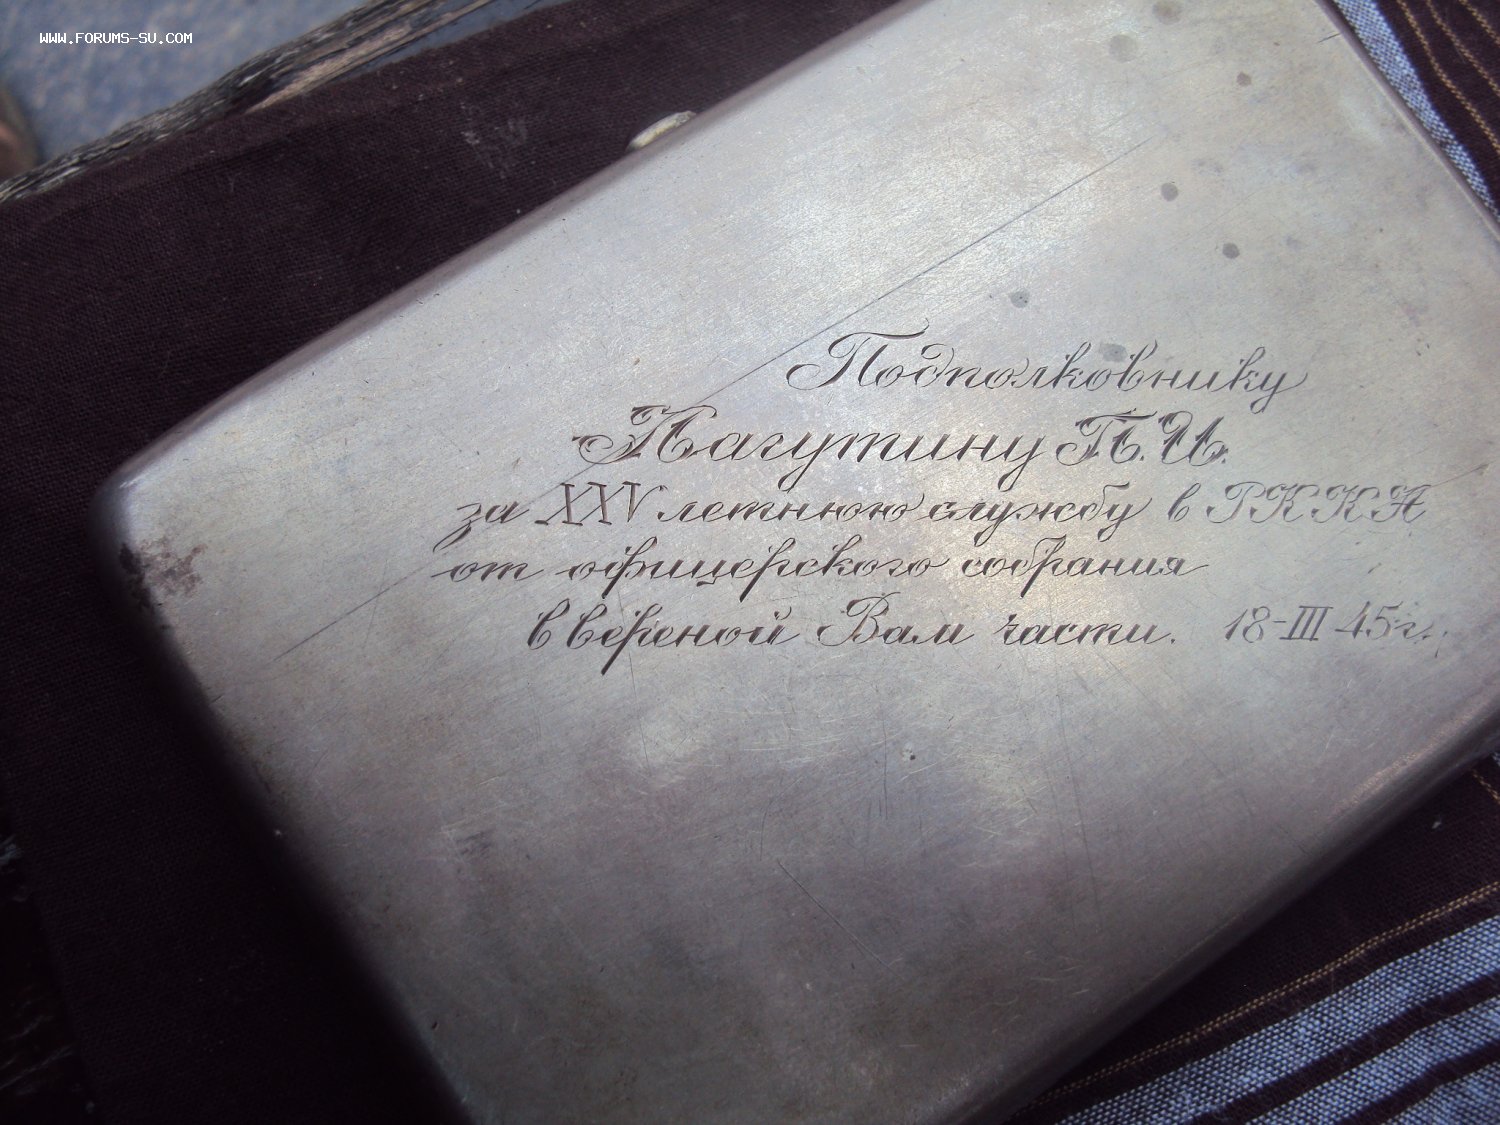 WWW.FORUMS-SU.COM
Подполковнику
Нагутину П.И.
за XXV летнюю службу в РККА
от офицерского собрания
ввереной Вам части. 18-III 45 г.